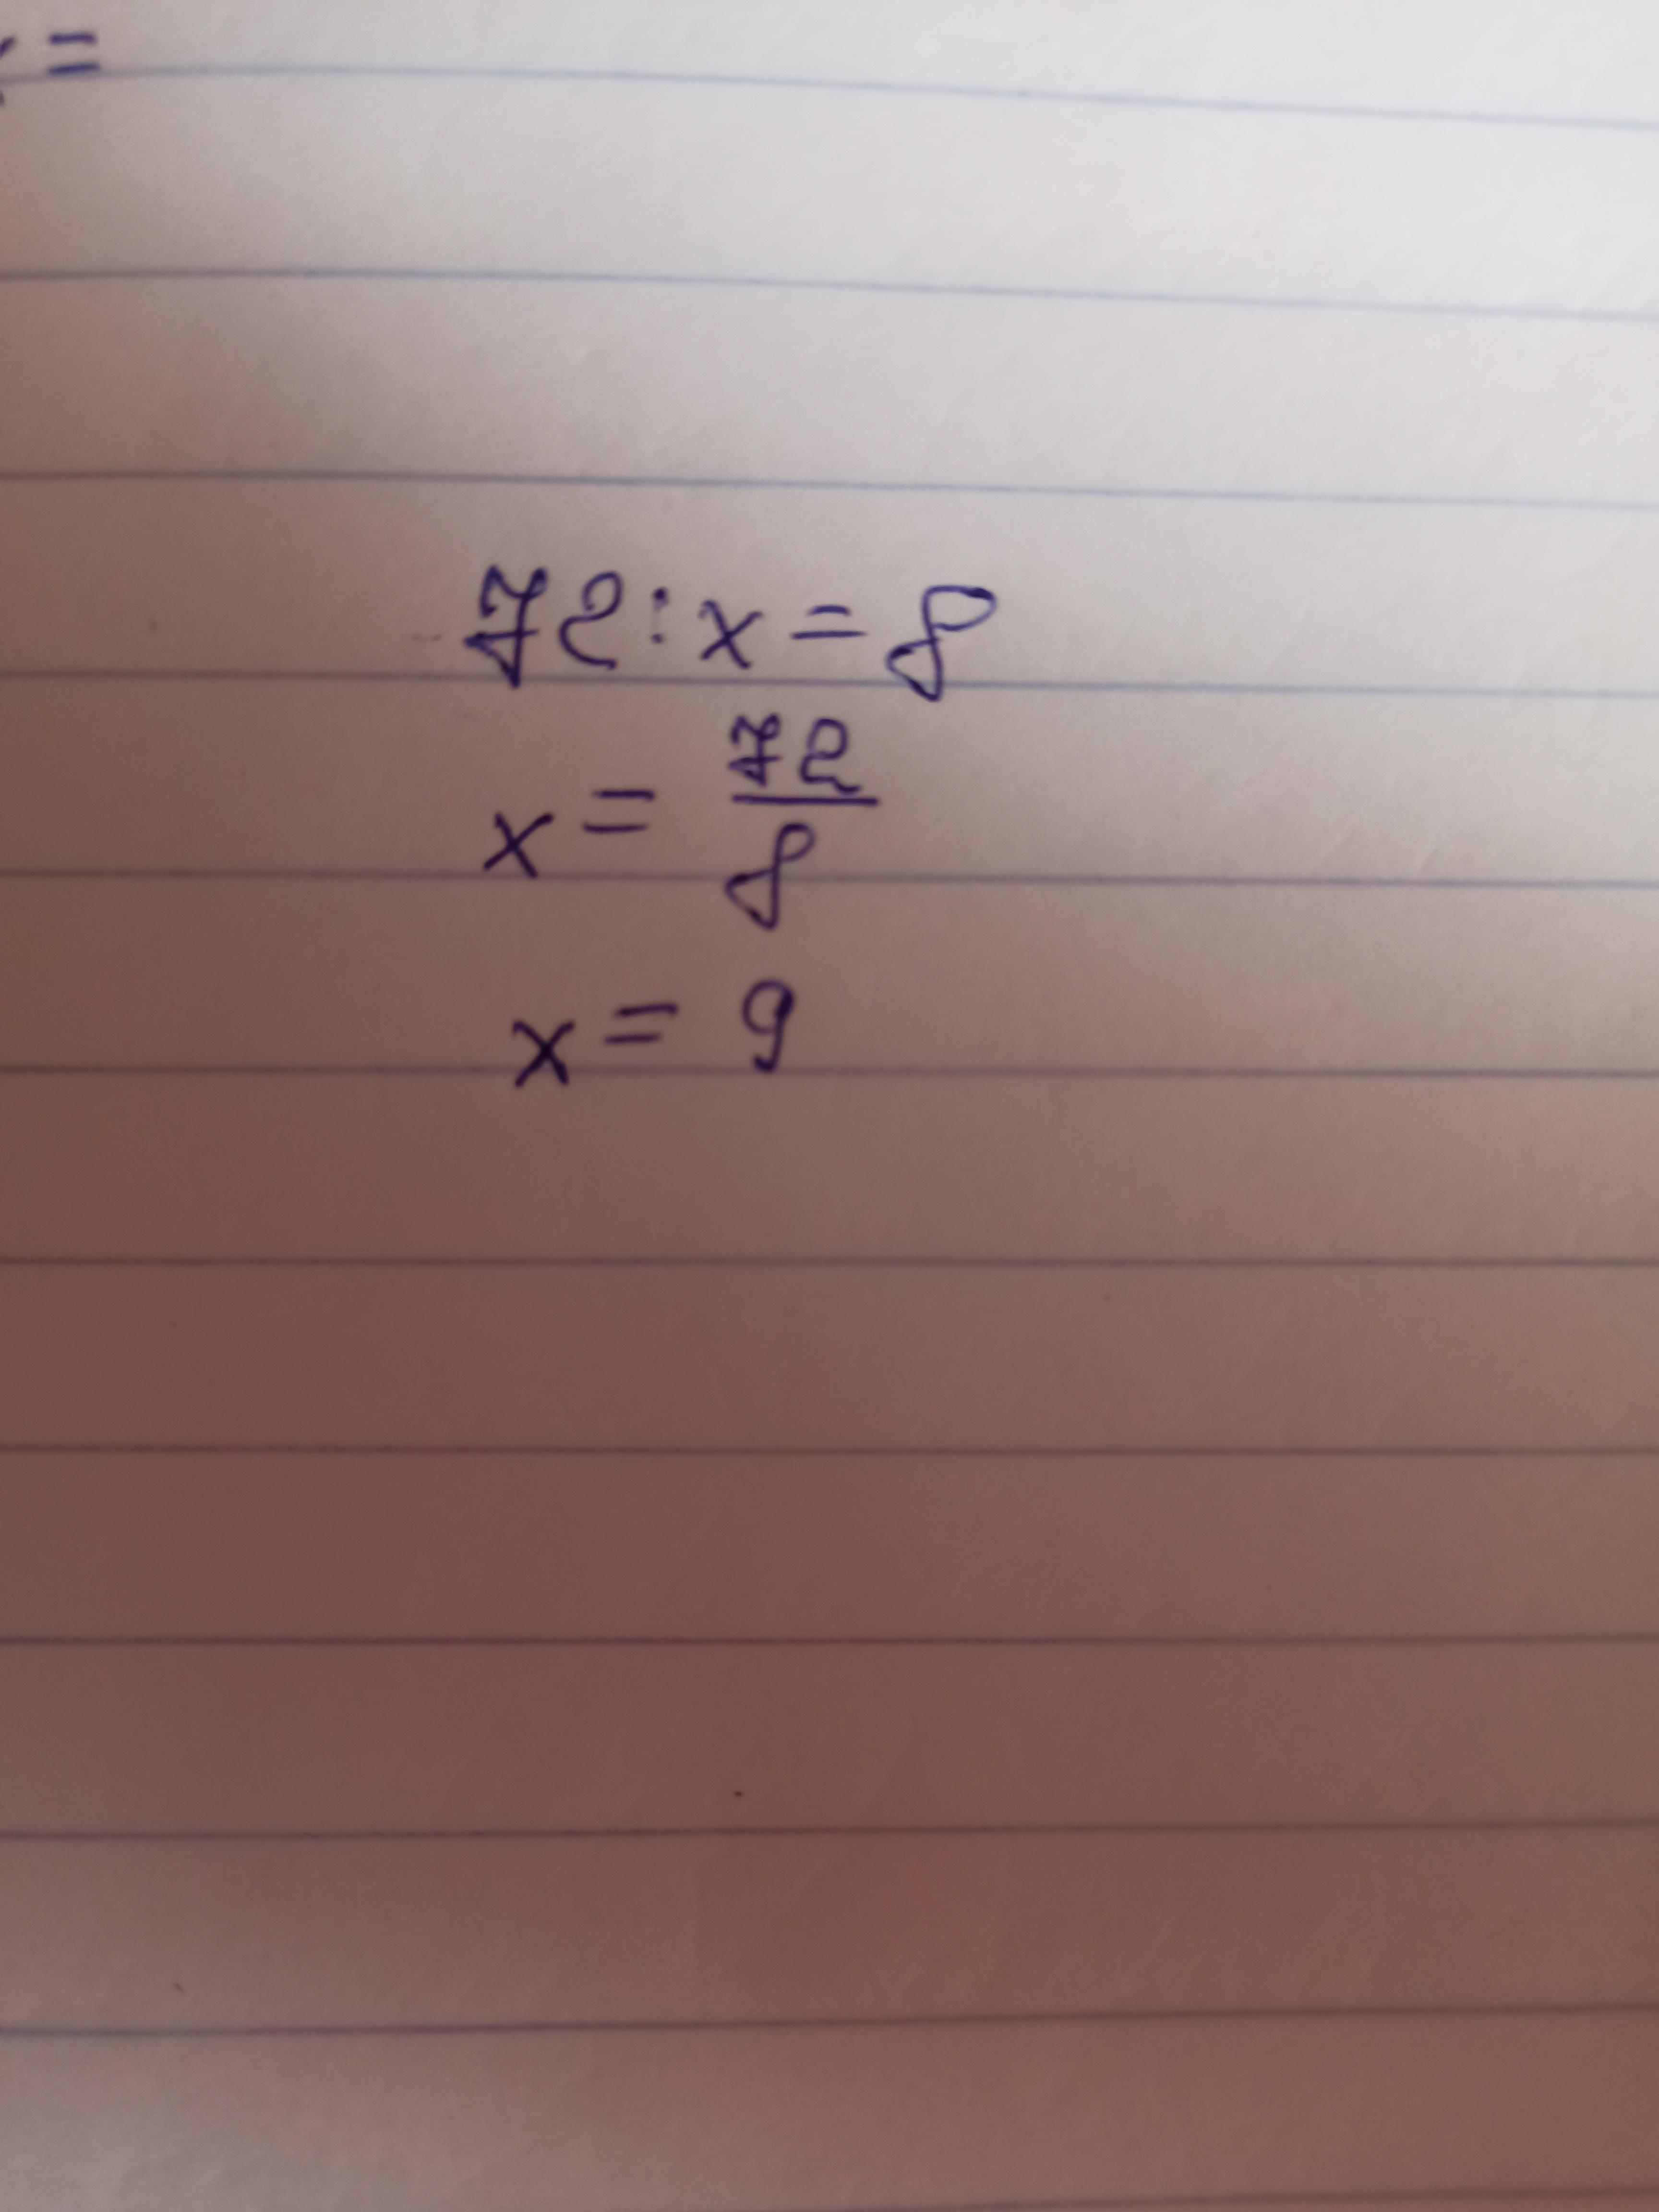 x =
72 : x = 8
x = 72/8
x = 9